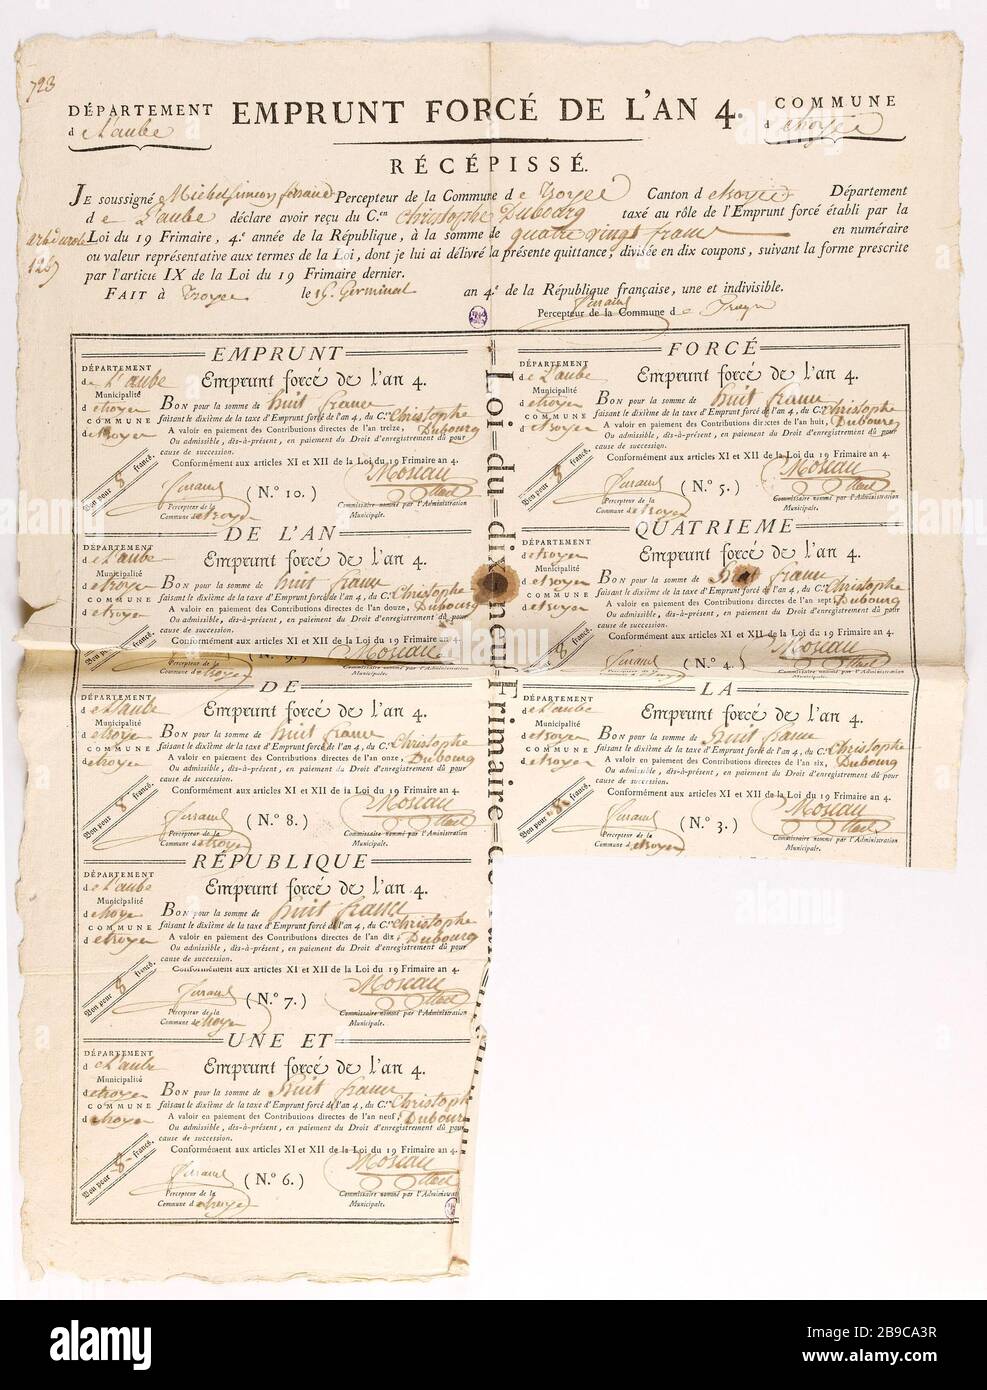 723
DÉPARTEMENT
d e L'aube
EMPRUNT FORCÉ DE L'AN 4.
COMMUNE
d e troyes
RÉCÉPISSÉ.
JE soussigné Michel Simon Percepteur de la Commune de Troyes Canton de troyes Département
de L'aube déclare avoir reçu du C.en Christophe Dubourg taxé au rôle de l'Emprunt forcé établi par la
Loi du 19 Frimaire, 4.e année de la République, à la somme de quatre vingt francs en numéraire
ou valeur représentative aux termes de la Loi, dont je lui ai délivré la présente quittance, divisée en dix coupons, suivant la forme prescrite
par l'article IX de la Loi du 19 Frimaire dernier.
FAIT à Troyes le Germinal an 4.e de la République française, une et indivisible.
Percepteur de la Commune d e Troyes
EMPRUNT
DÉPARTEMENT
de L'aube
Municipalité
d e troyes
COMMUNE
d e troyes
Emprunt forcé de l'an 4.
BON pour la somme de huit francs
faisant le dixième de la taxe d'Emprunt forcé de l'an 4, du C.en Christophe
A valoir en paiement des Contributions directes de l'an treize, Dubourg
Ou admissible, dès-à-présent, en paiement du Droit d'enregistrement dû pour
cause de succession.
Conformément aux articles XI et XII de la Loi du 19 Frimaire an 4.
Bon pour 8 francs.
Percepteur de la
Commune d e troyes
(N.° 10.)
Commissaire nommé par l'Administration
Municipale.
DE L'AN
DÉPARTEMENT
d e L'aube
Municipalité
d e troyes
COMMUNE
d e troyes
Emprunt forcé de l'an 4.
BON pour la somme de huit francs
faisant le dixième de la taxe d'Emprunt forcé de l'an 4, du C.en Christophe
A valoir en paiement des Contributions directes de l'an douze, Dubourg
Ou admissible, dès-à-présent, en paiement du Droit d'enregistrement dû pour
cause de succession.
Conformément aux articles XI et XII de la Loi du 19 Frimaire an 4.
Percepteur de la
Commune d e troyes
N.° 9.
Commissaire nommé par l'Administration
Municipale.
DE
DÉPARTEMENT
d e L'aube
Municipalité
d e troyes
COMMUNE
d e troyes
Emprunt forcé de l'an 4.
BON pour la somme de huit francs
faisant le dixième de la taxe d'Emprunt forcé de l'an 4, du C.en Christophe
A valoir en paiement des Contributions directes de l'an onze, Dubourg
Ou admissible, dès-à-présent, en paiement du Droit d'enregistrement dû pour
cause de succession.
Conformément aux articles XI et XII de la Loi du 19 Frimaire an 4.
Bon pour 8 francs.
Percepteur de la
Commune d e troyes
(N.° 8.)
Commissaire nommé par l'Administration
Municipale.
RÉPUBLIQUE
DÉPARTEMENT
d e L'aube
Municipalité
d e troyes
COMMUNE
d e troyes
Emprunt forcé de l'an 4.
BON pour la somme de huit francs
faisant le dixième de la taxe d'Emprunt forcé de l'an 4, du C.en Christophe
A valoir en paiement des Contributions directes de l'an dix, Dubourg
Ou admissible, dès-à-présent, en paiement du Droit d'enregistrement dû pour
cause de succession.
Conformément aux articles XI et XII de la Loi du 19 Frimaire an 4.
Bon pour 8 francs.
Percepteur de la
Commune d e troyes
(N.° 7.)
Commissaire nommé par l'Administration
Municipale.
UNE ET
DÉPARTEMENT
d e L'aube
Municipalité
d e troyes
COMMUNE
d e troyes
Emprunt forcé de l'an 4.
BON pour la somme de huit francs
faisant le dixième de la taxe d'Emprunt forcé de l'an 4, du C.en Christophe
A valoir en paiement des Contributions directes de l'an neuf, Dubourg
Ou admissible, dès-à-présent, en paiement du Droit d'enregistrement dû pour
cause de succession.
Conformément aux articles XI et XII de la Loi du 19 Frimaire an 4.
Bon pour 8 francs.
Percepteur de la
Commune d e troyes
(N.° 6.)
Commissaire nommé par l'Administration
Municipale.
Loi du dix-neuf Frimaire de
FORCÉ
DÉPARTEMENT
d e L'aube
Municipalité
d e troyes
COMMUNE
d e troyes
Emprunt forcé de l'an 4.
BON pour la somme de huit francs
faisant le dixième de la taxe d'Emprunt forcé de l'an 4, du C.en Christophe
A valoir en paiement des Contributions directes de l'an huit, Dubourg
Ou admissible, dès-à-présent, en paiement du Droit d'enregistrement dû pour
cause de succession.
Conformément aux articles XI et XII de la Loi du 19 Frimaire an 4.
Bon pour 8 francs.
Percepteur de la
Commune d e troyes
(N.° 5.)
Commissaire nommé par l'Administration
Municipale.
QUATRIEME
DÉPARTEMENT
d e troyes
Municipalité
d e troyes
COMMUNE
d e troyes
Emprunt forcé de l'an 4.
BON pour la somme de huit francs
faisant le dixième de la taxe d'Emprunt forcé de l'an 4, du C.en Christophe
A valoir en paiement des Contributions directes de l'an sept, Dubourg
Ou admissible, dès-à-présent, en paiement du Droit d'enregistrement dû pour
cause de succession.
Conformément aux articles XI et XII de la Loi du 19 Frimaire an 4.
Bon pour 8 francs.
Percepteur de la
Commune d e troyes
(N.° 4.)
Commissaire nommé par l'Administration
Municipale.
LA
DÉPARTEMENT
d e L'aube
Municipalité
d e troyes
COMMUNE
d e troyes
Emprunt forcé de l'an 4.
BON pour la somme de huit francs
faisant le dixième de la taxe d'Emprunt forcé de l'an 4, du C.en Christophe
A valoir en paiement des Contributions directes de l'an six, Dubourg
Ou admissible, dès-à-présent, en paiement du Droit d'enregistrement dû pour
cause de succession.
Conformément aux articles XI et XII de la Loi du 19 Frimaire an 4.
Bon pour 8 francs.
Percepteur de la
Commune d e troyes
(N.° 3.)
Commissaire nommé par l'Administration
Municipale.
alamy
Image ID: 2B9CA3R
www.alamy.com